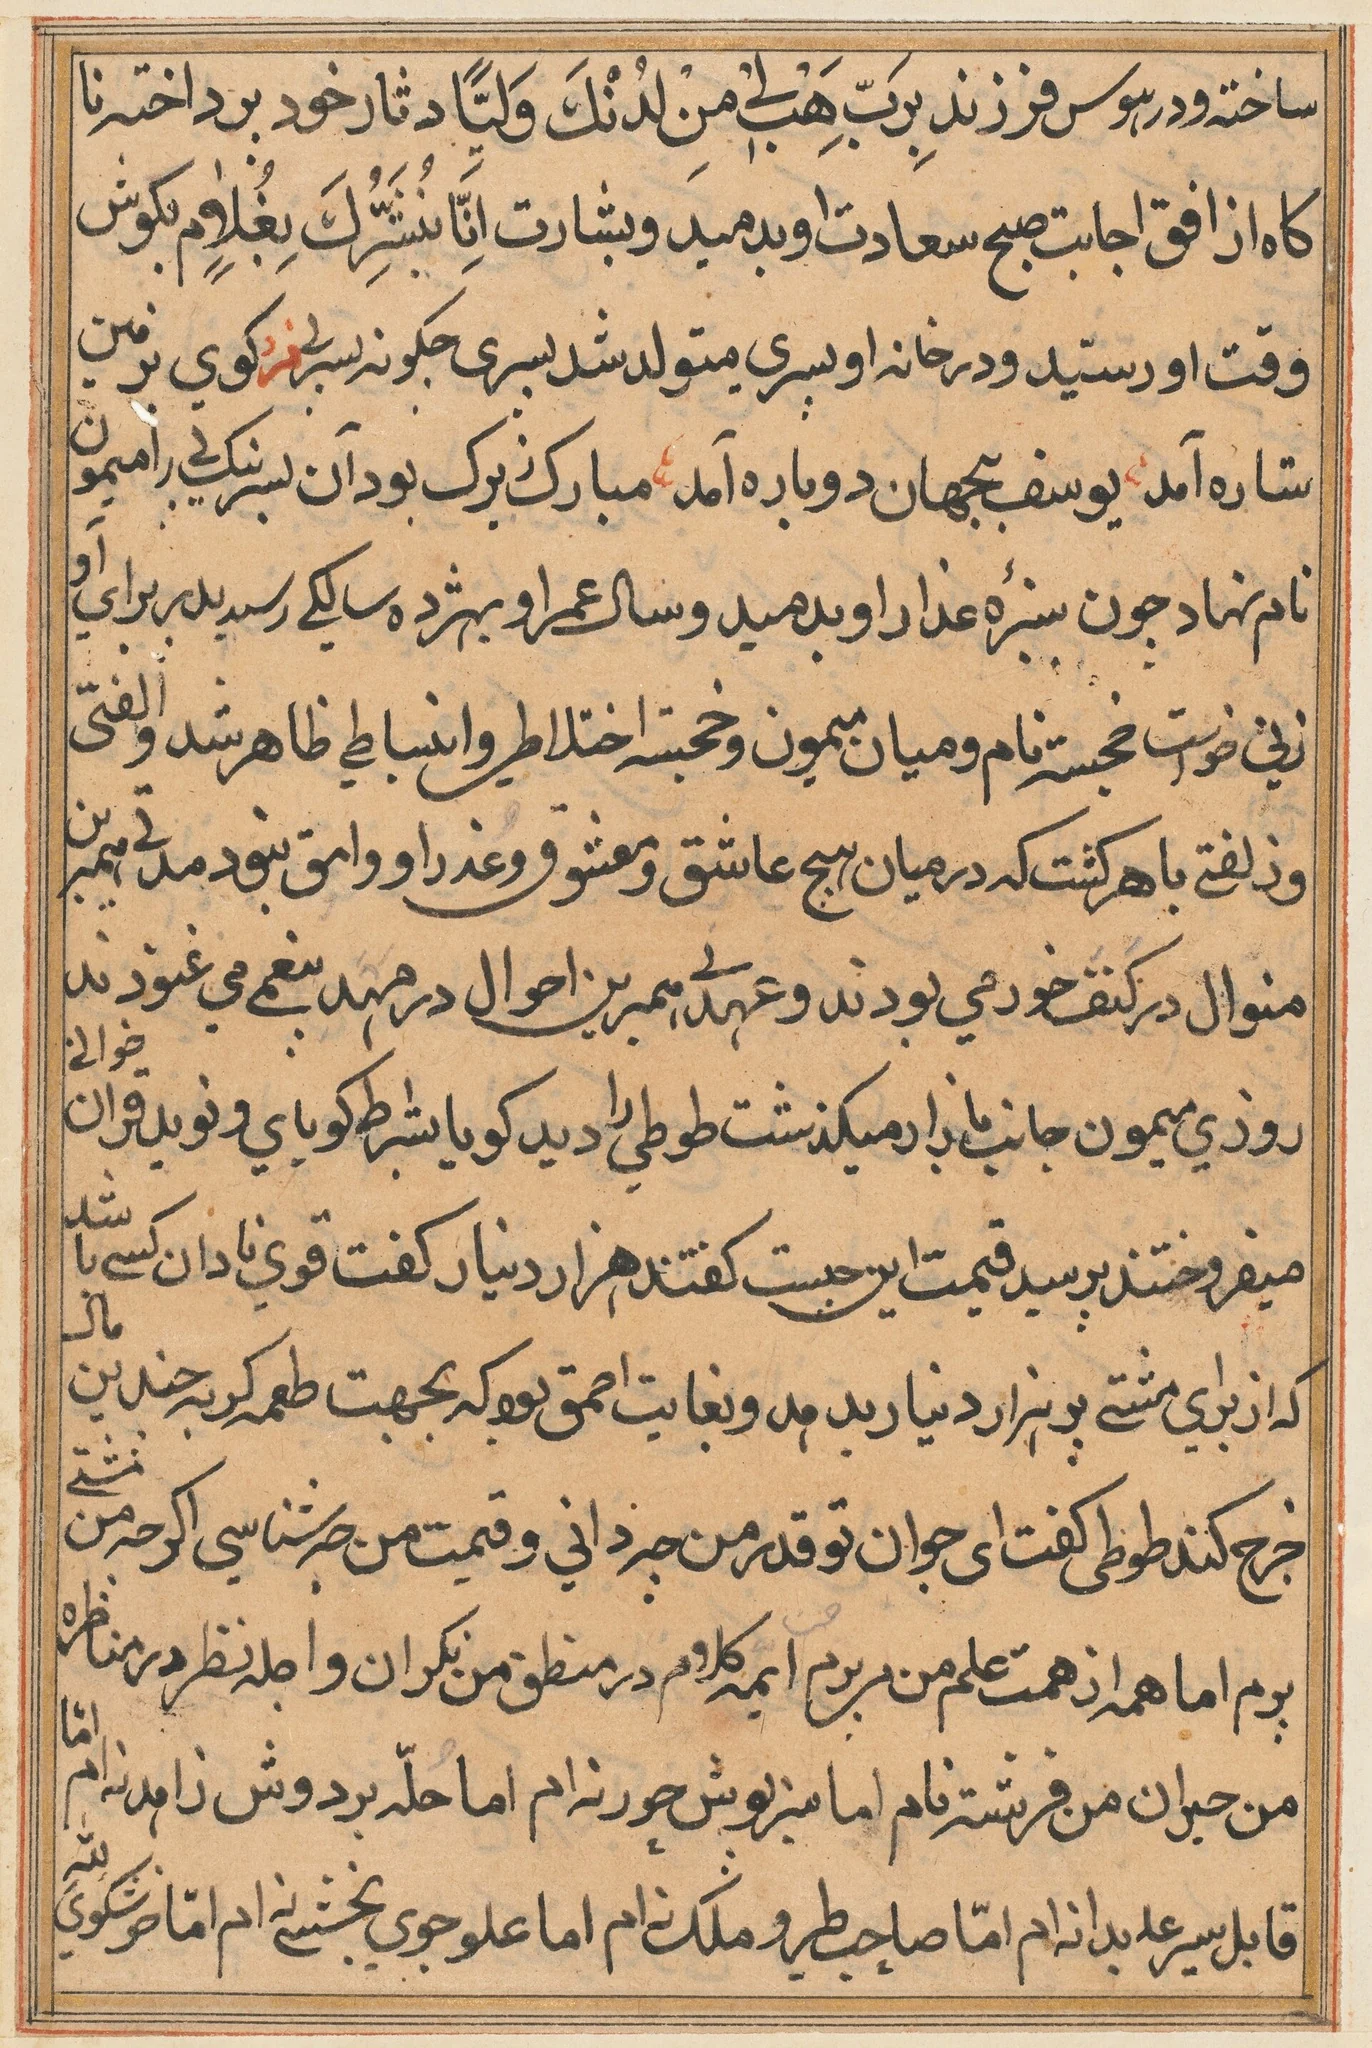 ساخته و در هوس فرزند بِرَبِّ هَبْ لِیْ مِنْ لَدُنْكَ وَلِیًّا دثار خود برداخته نا
کاه از افق اجابت صبح سعادت او بدمید و بشارت اِنَّا نُبَشِّرُكَ بِغُلاٰمٍ بکوش
وقت او رسید و در خانه او پسری متولد شد پسری جکونه پسری فرد کوی بزمین
ستاره آمد یوسف بجهان دوباره آمد مبارک زیرک بود آن پسر نیک پی را میمون
نام نهاد جون سبزهٔ عذار او بدمید و سال عمر او بهژده سالکے رسید پدر برای او
زنی خواست خجسته نام و میان میمون و خجسته اختلاطی و انبساطی ظاهر شد و الفتی
و زلفتے باهر کشت که در میان هیج عاشق و معشوق و عذرا و وامق نبود مدتی همبرین
منوال در کنف خود می بودند و عهدی همبرین احوال در مهد بنعمے می غنودند
روزی میمون جانب بازار میکذشت طوطی را دید کویا بشرط کویای و نوید قران خوانی
میفروختند پرسید قیمت این جیست کفتند هزار دنیار کفت قوی نادان کسے باشد
که از برای مشتے پر هزار دنیار بدهد و بغایت احمق بود که بجهت طعمه کربه جندین مال
خرج کند طوطی کفت ای جوان تو قدر من چه دانی و قیمت من چه شناسی اکرجه من مشتے
پرم اما همه از همت علم من می پرم ایمه کلام در منطق من نکران و اجله نظر در مناظره
من حیران من فرشته نام اما سبزپوش حور نه ام اما حلّه بر دوش زاهد نه ام امّا
قابل سیر علی بدانه ام امّا صاحب طیر و ملک نه ام اما علو جوی بخشے نه ام امّا خوشکوی